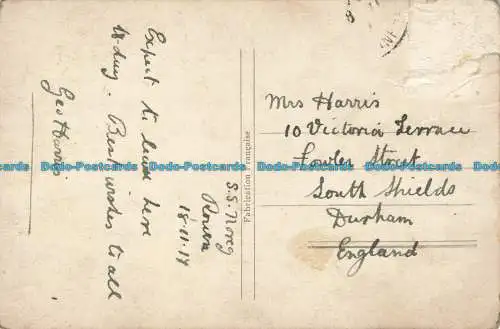 S.S. Noreg
Rouen
18-11-14
Expect to leave here
to-day. Best wishes to all
Geo Harris
Fabrication Française
Mrs Harris
10 Victoria Terrace
Fowler Street
South Shields
Durham
England
Dodo-Postcards Dodo-Postcards Dodo-Postcards Dodo-Postcards Dodo-Postcards